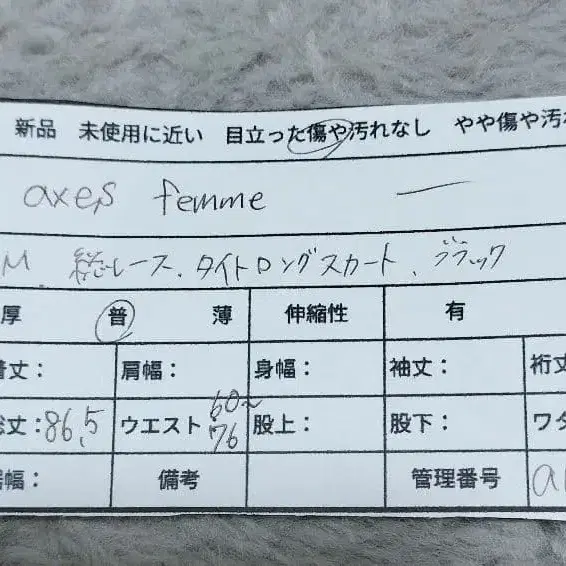 新品 未使用に近い 目立った傷や汚れなし やや傷や汚
axes femme ー
M、総レース、タイトロングスカート、ブラック
厚 普 薄 伸縮性 有
着丈： 肩幅： 身幅： 袖丈： 裄丈
総丈：86,5 ウエスト 60~76 股上： 股下： ワタ
裾幅： 備考 管理番号 a